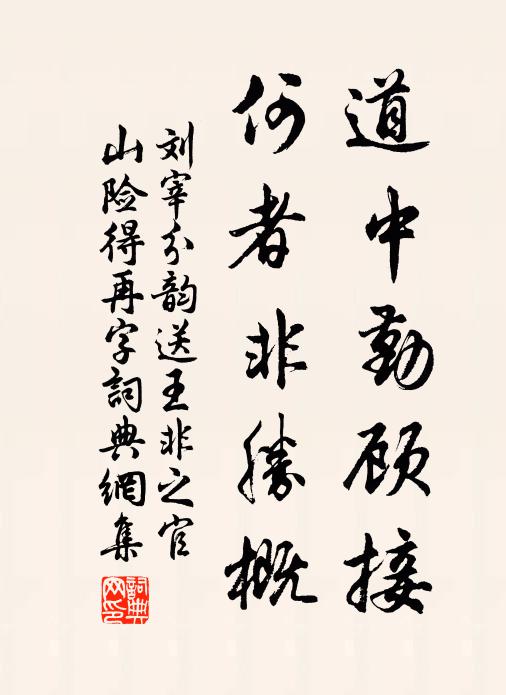 道中勤顾接
何者非勝概
刘宰分韵送王非之官
山险得再字詞典網集
詞典网印